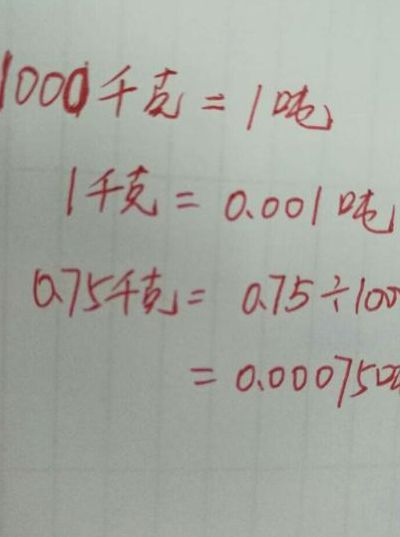 1000千克=1吨
1千克=0.001吨
0.75千克=0.75÷100
=0.00075